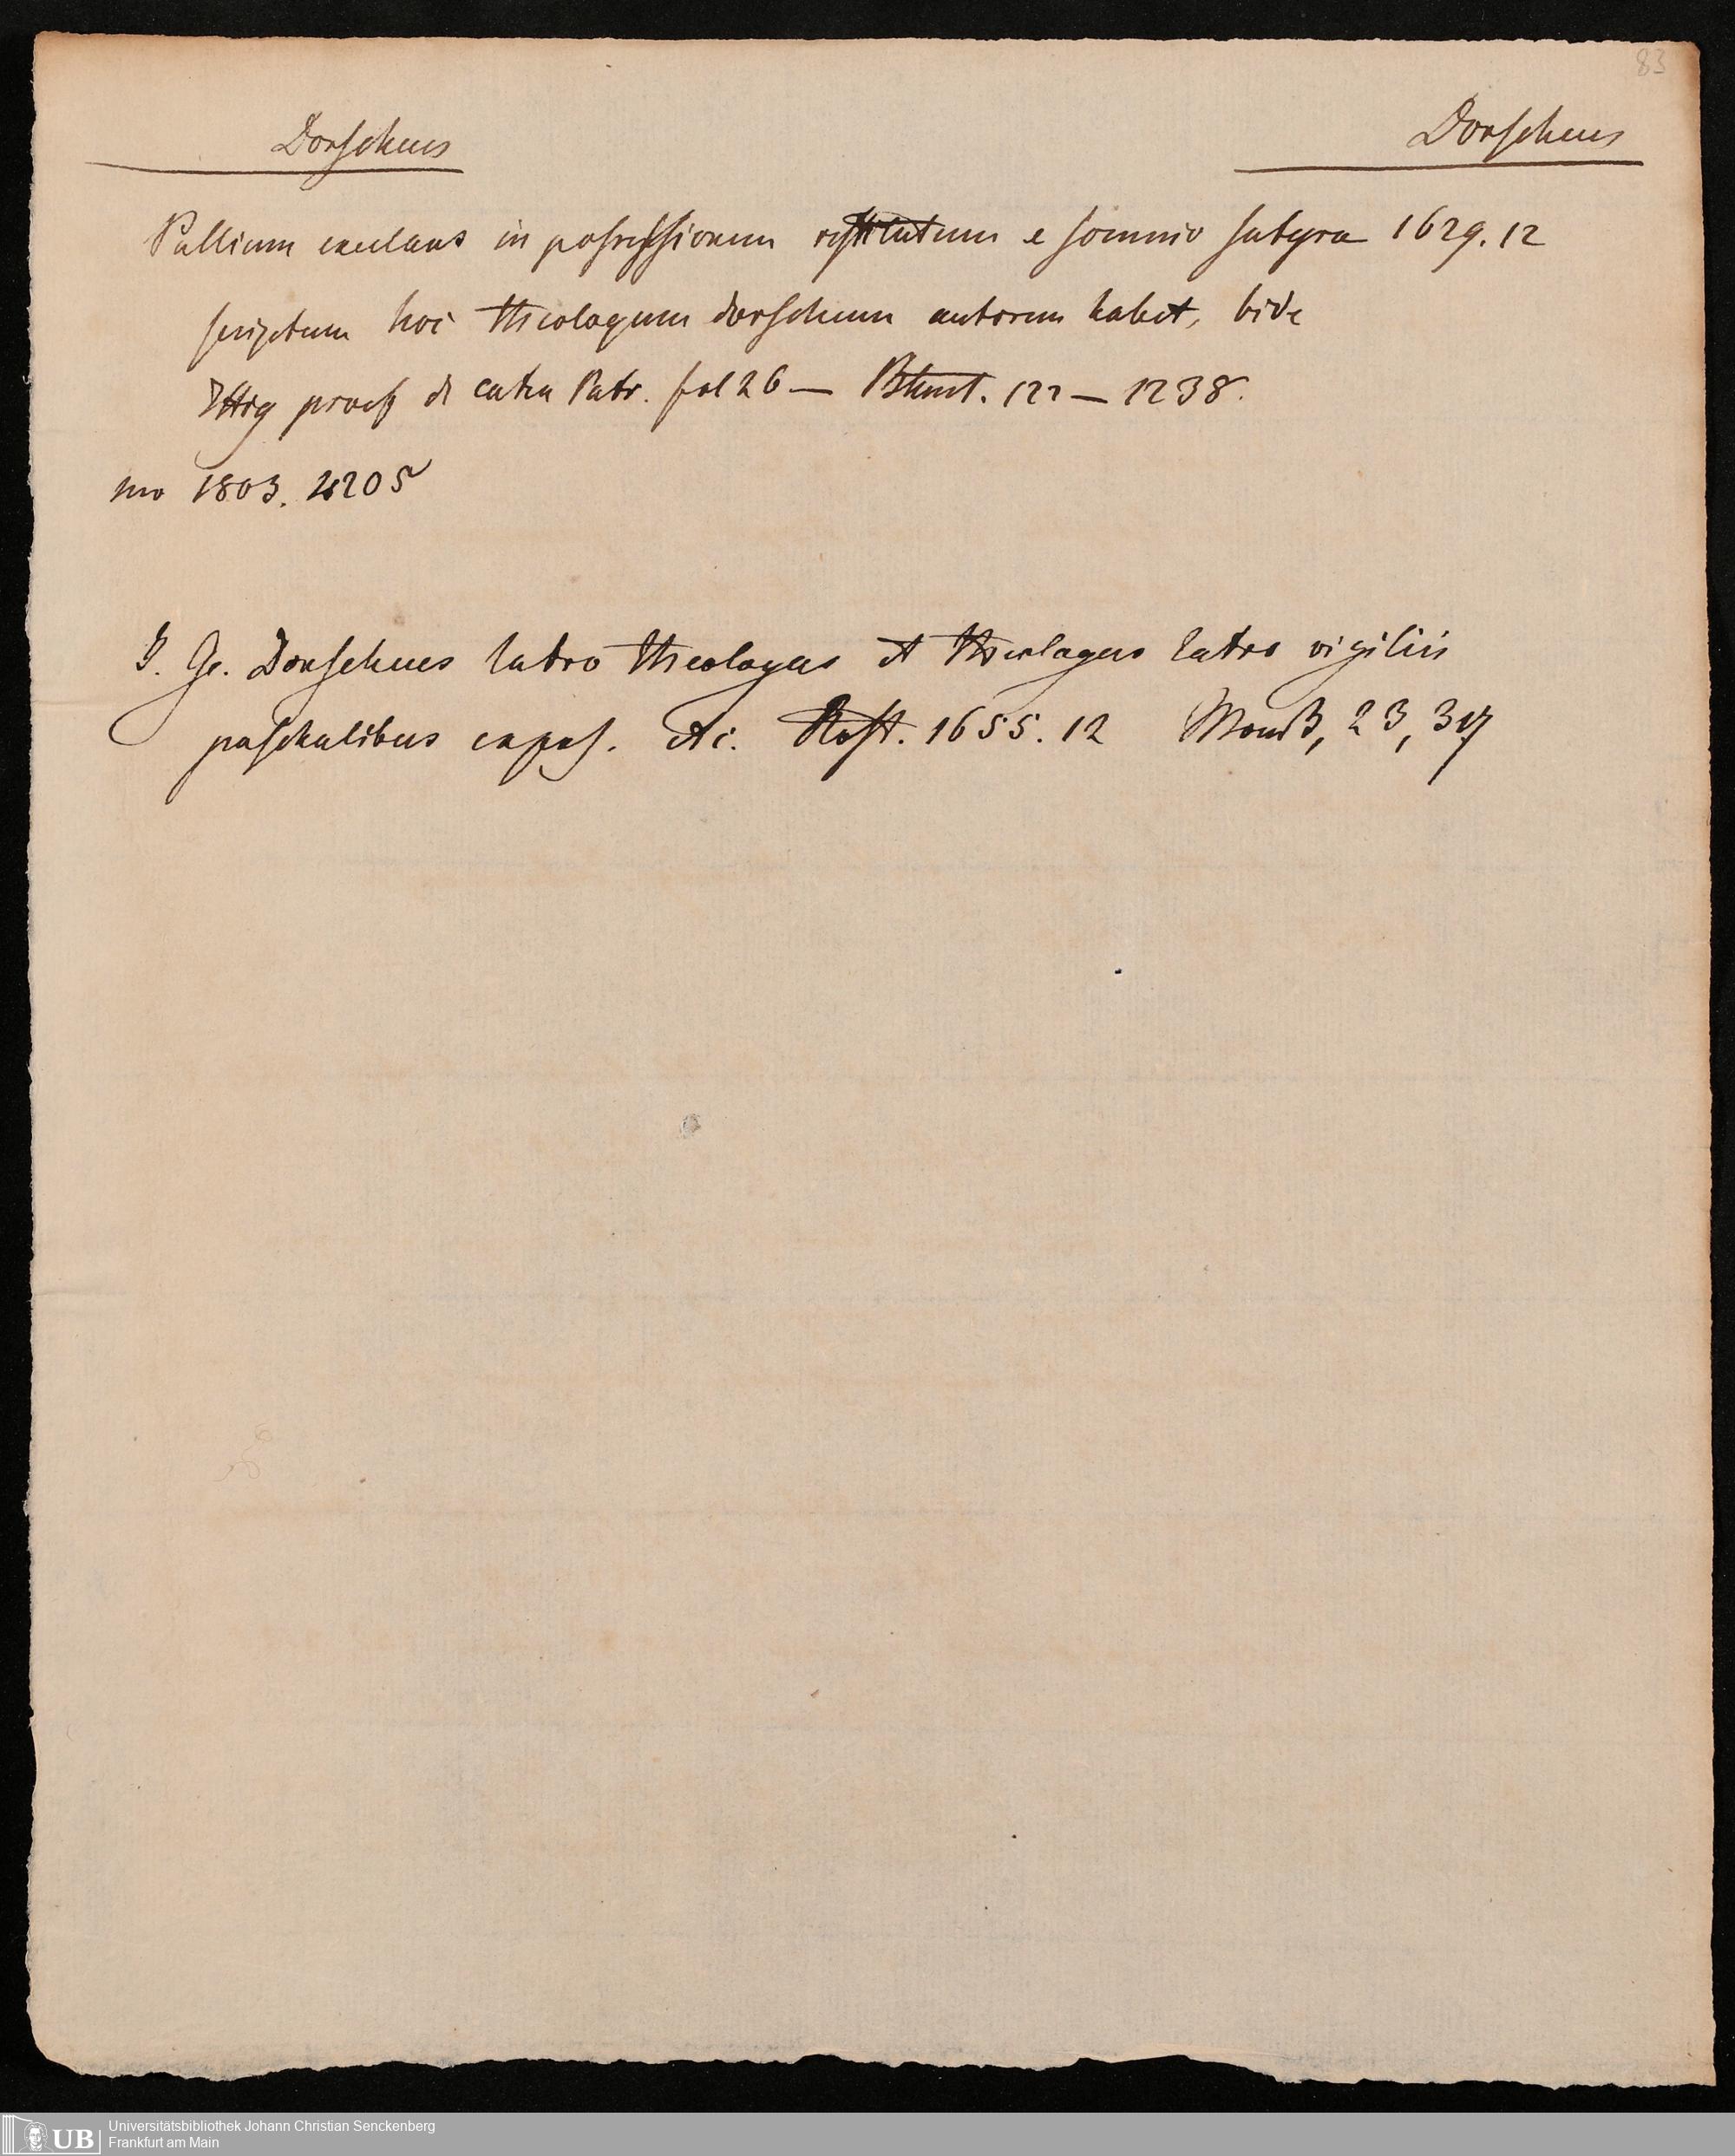 83
Dorscheus
Dorscheus
Pallium exulans in possessionem restitutum e somnio satyra 1629. 12
scriptum hoc theologum dorscheum autorem habet, vide
Ittig de Patr. fol 26 — 122 — 1238.
1803. 
J. Ge. Dorscheus latro theologus et theologus latro vigiliis
paschalibus expos. etc. Rost. 1655. 12 23, 
UB
Universitätsbibliothek Johann Christian Senckenberg
Frankfurt am Main